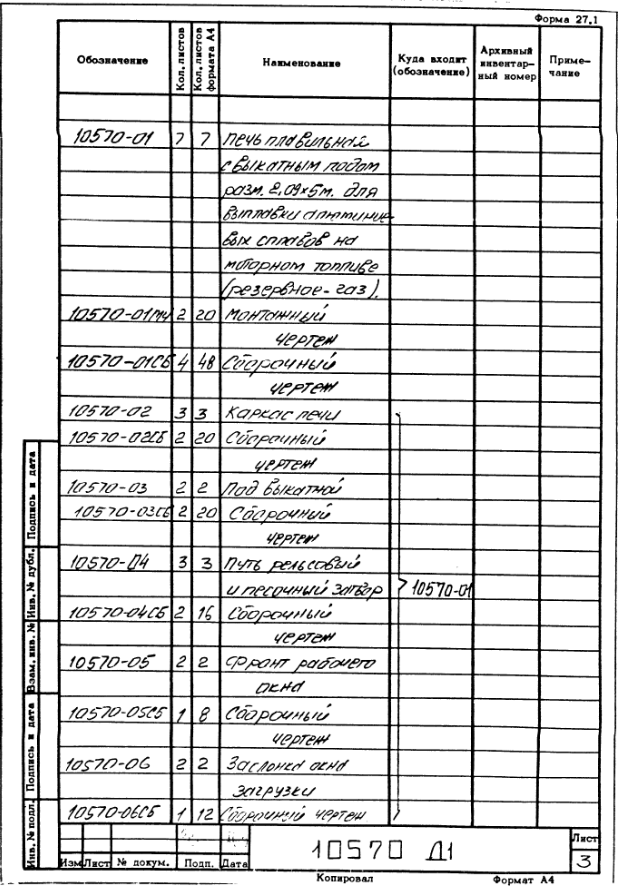 Форма 27.1
Обозначение Кол. листов Кол. листов формата А4 Наименование Куда входит (обозначение) Архивный инвентарный номер Примечание
10570-01 7 7 Печь плавильная
с выкатным подом
разм. 2,09×5м. для
выплавки алюминие-
вых сплавов на
моторном топливе
(резервное - газ).
10570-01МЧ 2 20 Монтажный
чертеж
10570-01СБ 4 48 Сборочный
чертеж
10570-02 3 3 Каркас печи
10570-02СБ 2 20 Сборочный
чертеж
10570-03 2 2 Под выкатной
10570-03СБ 2 20 Сборочный
чертеж
10570-04 3 3 Путь рельсовый
и песочный затвор 10570-01
10570-04СБ 2 16 Сборочный
чертеж
10570-05 2 2 Фронт рабочего
окна
10570-05СБ 1 8 Сборочный
чертеж
10570-06 2 2 Заслонка окна
загрузки
10570-06СБ 1 12 Сборочный чертеж
Инв. № подл. Подпись и дата Взам. инв. № Инв. № дубл. Подпись и дата
Изм Лист № докум. Подп. Дата
10570 Д1
Лист
3
Копировал Формат А4